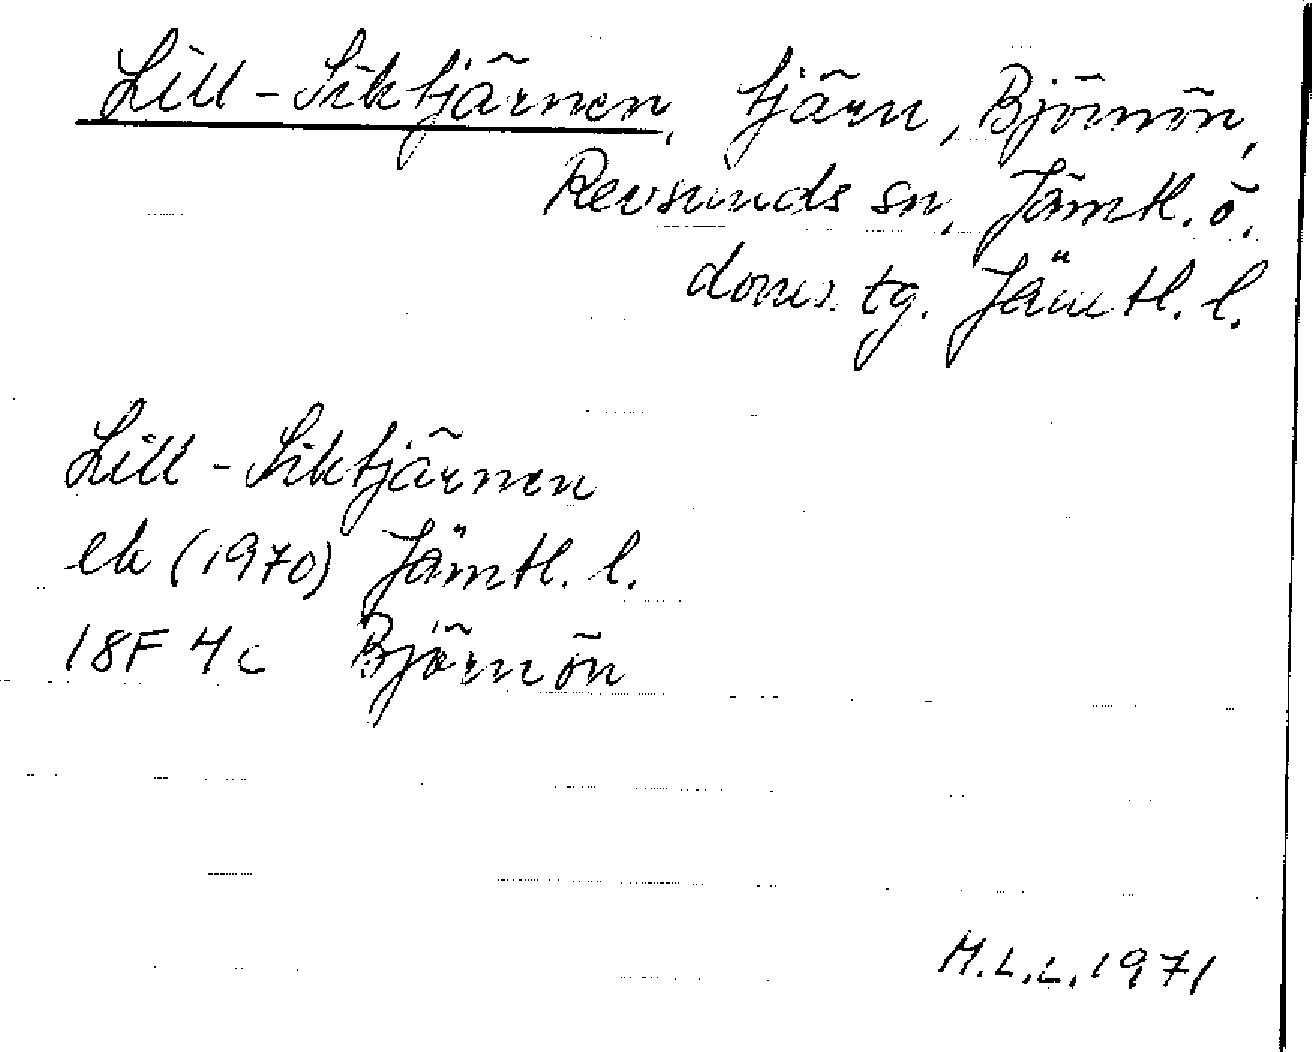 Lill-Siktjärnen, tjärn, Björnön,
Revsunds sn, Jämtl. ö.
doms. tg. Jämtl. l.
Lill-Siktjärnen
ek (1970) Jämtl. l.
18F 4c Björnön
M.L.L. 1971